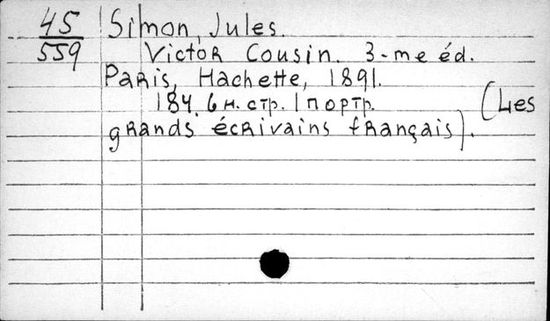 45
559
Simon, Jules.
Victor Cousin. 3-me éd.
Paris, Hachette, 1891.
184. 6 н. стр. 1 портр. (Les
grands écrivains français).